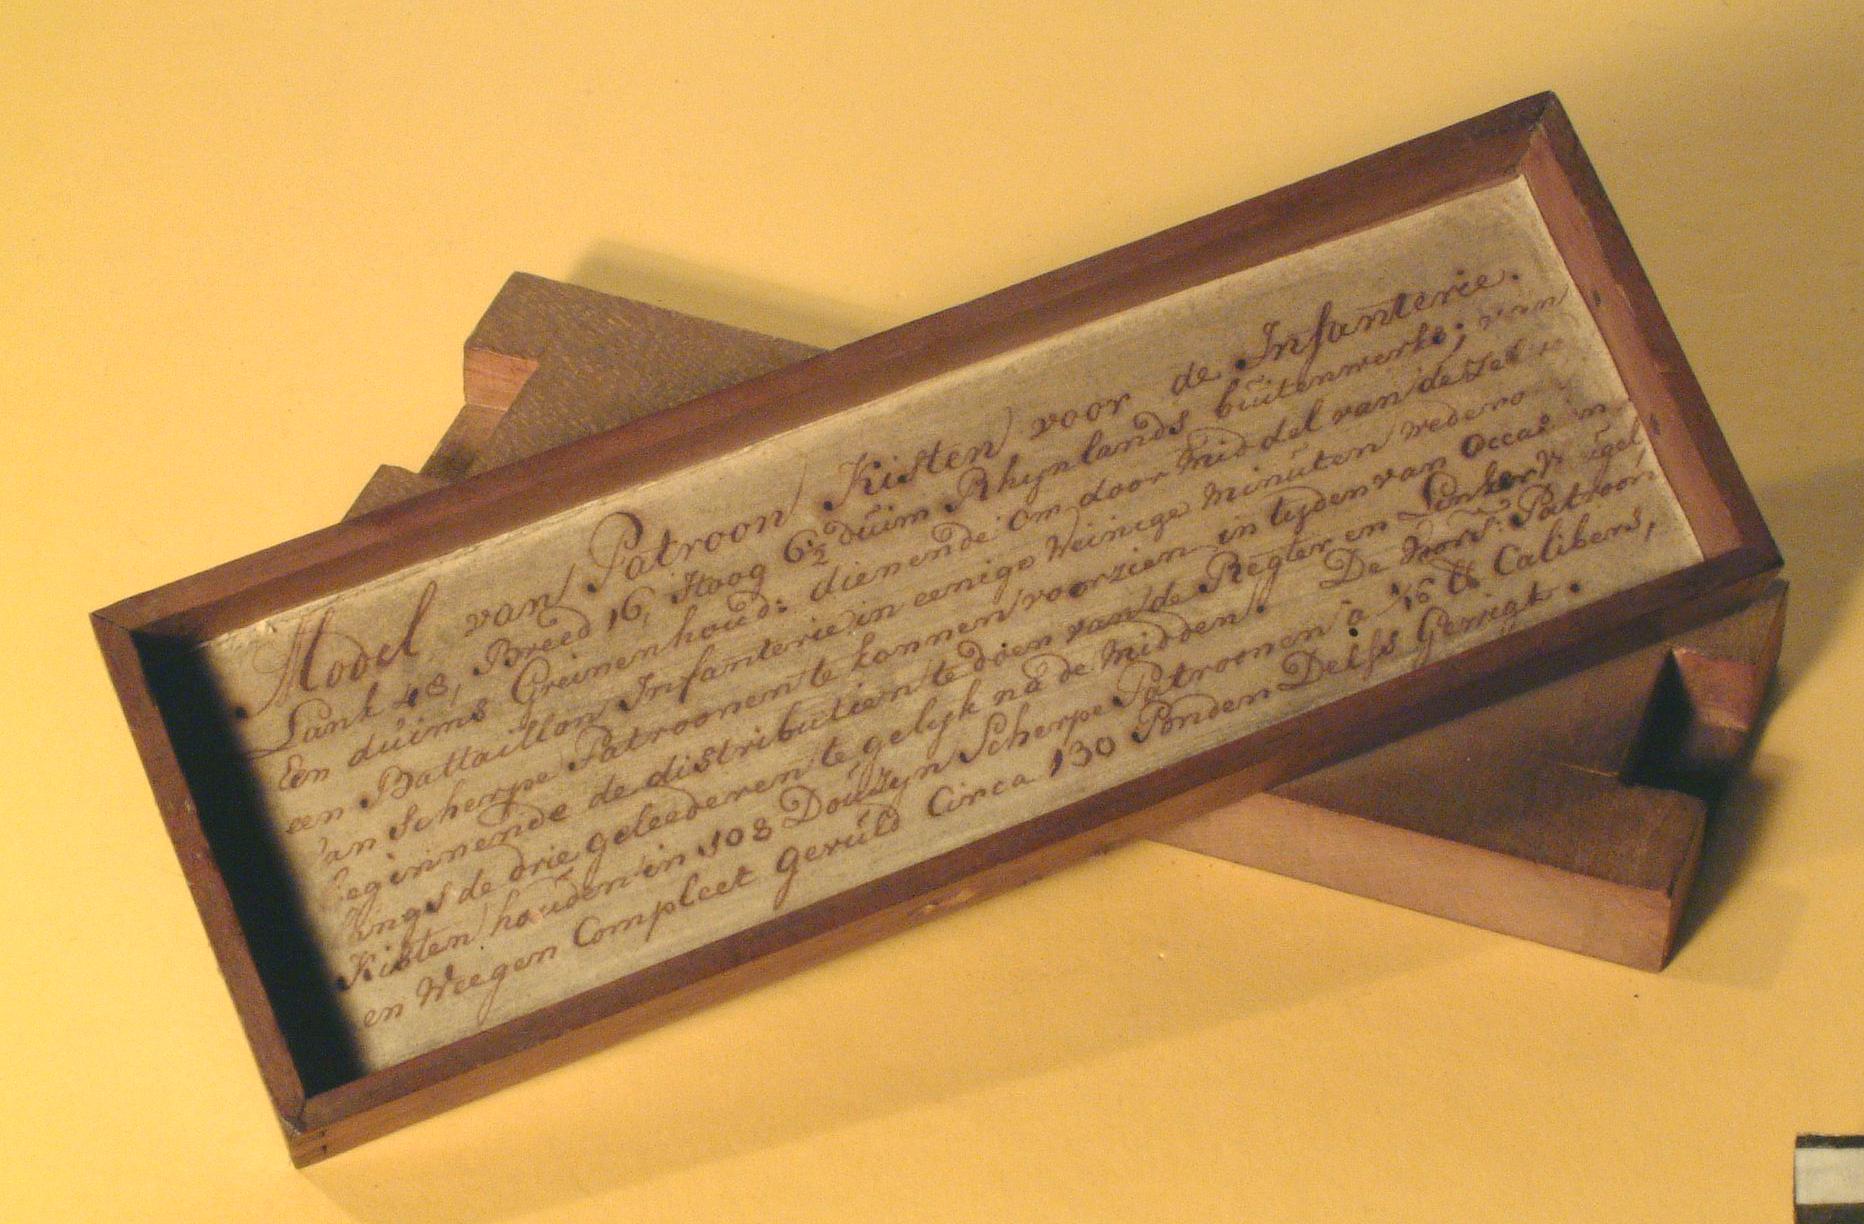 Model van Patroon Kisten voor de Infanterie.
Lank 48, Breed 16, Hoog 6½ duim Rhynlands buitenwerks; van
Een duims Greinenhoud: dienende om door middel van dezel
een Battaillon Infanterie in eenige Weinige minuten wedero
van scherpe Patroonen te konnen voorzien in tyden van occas
beginnende de distributien te doen van de Regter en Linker
lings de drie geleederen te gelyk na de midden. De Patroon
Kisten houden in 108 Douzyn Scherpe Patroonen a 1/16 ℔ Calibers,
en Weegen Compleet gevuld Circa 130 Ponden Delfs Gewigt.